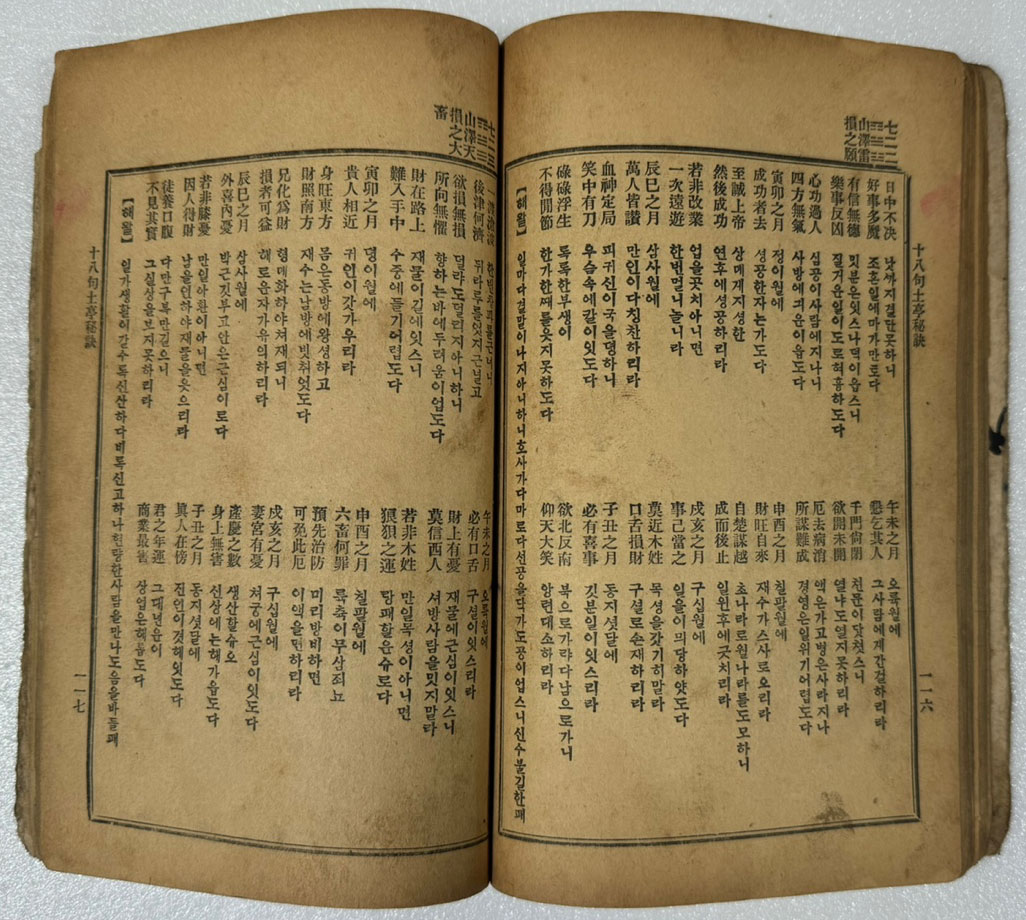 七二二
山澤雷
損之願
十八句土亭秘訣
日中不决 낫까지결단못하니
好事多魔 조흔일에마가만토다
有信無德 밋븐은잇스나덕이읍스니
樂事反凶 질거운일이도로혀흉하도다
心功過人 심공이사람에지나니
四方無氣 사방에긔운이읍도다
寅卯之月 정이월에
成功者去 성공한자는가도다
至誠上帝 상데게지성한
然後成功 연후에성공하리라
若非改業 업을곳치아니면
一次遠遊 한번멀니놀니라
辰巳之月 삼사월에
萬人皆讃 만인이다칭찬하리라
血神定局 피귀신이국을뎡하니
笑中有刀 우슴속에칼이잇도다
碌碌浮生 록록한부생이
不得閒節 한가한째를웃지못하도다
午未之月 오륙월에
懇乞其人 그사람에게간걸하리라
千門尙閉 천문이닷첫스니
欲開未開 열냐도열지못하리라
厄去病消 액은가고병은사라지나
所謀難成 경영은일위기어렵도다
申酉之月 칠팔월에
財旺自來 재수가스사로오리라
自楚謀越 초나라로월나라를도모하니
成而後止 일윈후에긋치리라
戌亥之月 구십월에
事己當之 일을이믜당하얏도다
莫近木姓 목성을갓가히말라
口舌損財 구셜로손재하리라
子丑之月 동지셧달에
必有喜事 깃븐일이잇스리라
欲北反南 북으로가랴다남으로가니
仰天大笑 앙련대소하리라
【해왈】 일마다결말이나지아니하니호사가다마로다선공을닥가도공이업스니신수불길한괘
一一六
七二三
山澤天
損之大
畜
十八句土亭秘訣
後津何濟 뒤라루를엇지근널고
欲損無損 덜랴도덜리지아니하니
所向無懼 향하는바에두려움이업도다
財在路上 재물이길에잇스니
難入手中 수중에들기어렵도다
寅卯之月 뎡이월에
貴人相近 귀인이갓가우리라
身旺東方 몸은동방에왕셩하고
財照南方 재수는남방에빗최엿도다
兄化爲財 형매화하야재되니
損者可益 해로운자가유의하리라
辰巳之月 삼사월에
外喜內憂 박근깃부고안은근심이로다
若非膝憂 만일아환이아니면
因人得財 남을인하야재물을웃으리라
徒養口腹 다만구복만길으니
不見其實 그실상을보지못하리라
午未之月 오륙월에
必有口舌 구셜이잇스리라
財上有憂 재물에근심이잇스니
莫信西人 셔방사람을밋지말라
若非木姓 만일목셩이아니면
狼狽之運 랑패할운슈로다
申酉之月 칠팔월에
六畜何罪 륙축이무삼죄뇨
預先治防 미리방비하면
可免此厄 이액을면하리라
戌亥之月 구십월에
妻宮有憂 처궁에근심이잇도다
產慶之數 생산할슈오
身上無害 신상에는해가읍도다
子丑之月 동지셧달에
眞人在傍 진인이겻헤잇도다
君之年運 그대년운이
商業最害 상업은해롭도다
【해왈】 일가생활이갈수록신산하다비록신고하나현량한사람을만나도음을바들괘
一一七